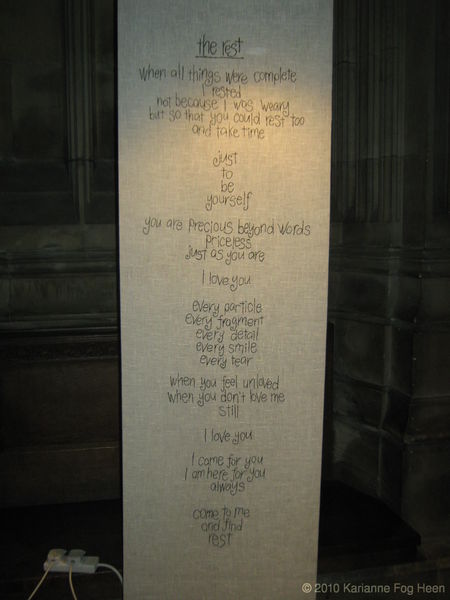 the rest
when all things were complete
I rested
not because I was weary
but so that you could rest too
and take time
just
to
be
yourself
you are precious beyond words
priceless
just as you are
I love you
every particle
every fragment
every detail
every smile
every tear
when you feel unloved
when you don't love me
still
I love you
I came for you
I am here for you
always
come to me
and find
rest
© 2010 Karianne Fog Heen